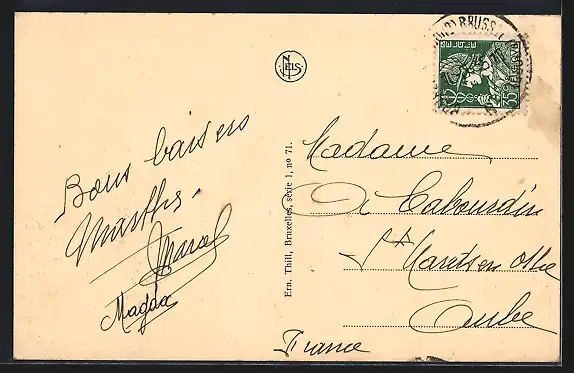 Bons baisers
Marthe.
Marcel
Magda
NELS
Ern. Thill, Bruxelles, série 1, no 71.
BRUSSEL
BELGIE
BELGIQUE
35c
Madame
A Cabourdin
St
Aube
France